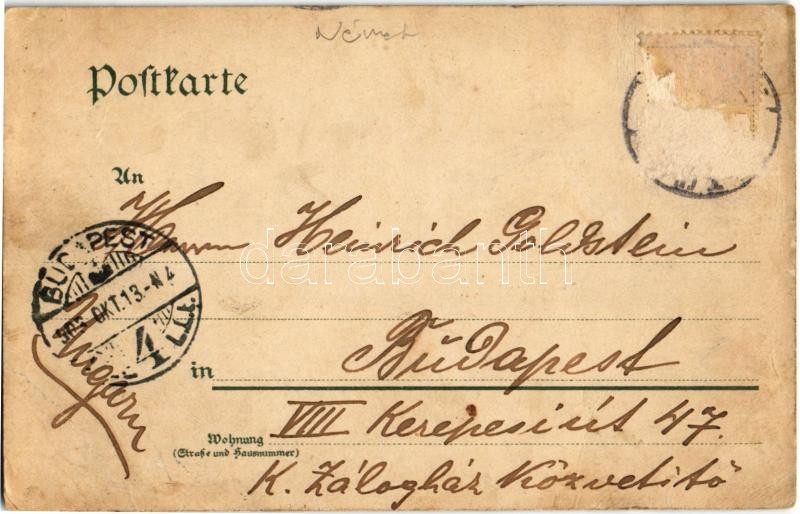 Német
Postkarte
An
Herrn Heinrich Goldstein
BUDAPEST
OKT. 13.-N 4
4
Ungarn
in Budapest
Wohnung
(Straße und Hausnummer)
VIII Kerepesi út 47.
K. Zálogház Közvetitö
darabanth